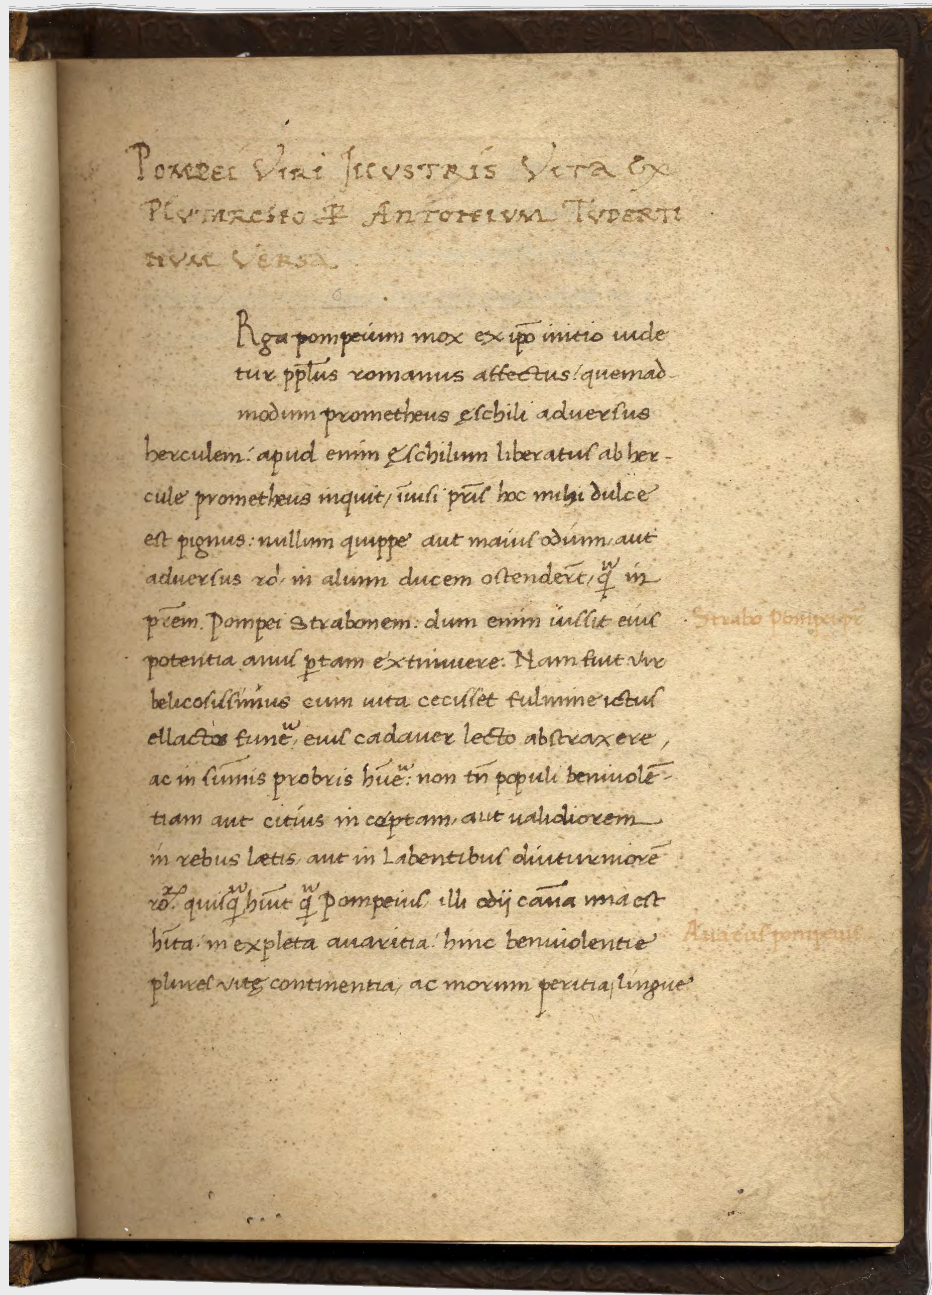 POMPEI VIRI ILLVSTRIS VITA EX
PLVTARCHO P̱ ANTONIVM TVDERTI
NVM VERSA
Rga pompeium mox ex ip̄o initio uide
tur pp̄lus romanus affectus: quemad-
modum prometheus ęschili adversus
herculem: apud enim ęschilum liberatus ab her-
cule prometheus inquit, iuusi pr̄is hoc mihi dulce
est pignus: nullum quippe aut maius odium, aut
adversus ro. in alium ducem ostender̄t, q̄ in
pr̄em. Pompei Strabonem: dum enim iussit eius
Strabo Pompei pr̄
potentia armis partam extimuere: Nam fuit vir
belicosissimus cum uita cecisset fulmine ictus
ellactos fune, eius cadauer lecto abstraxere,
ac in sum̄is probris hūe: non tn̄ populi beniuolē-
tiam aut citius inceptam, aut ualidiorem
in rebus lætis, aut in labentibus diuturniorē
ro. quisq̄ hiūt q̄ Pompeius, illi odij cauā una est
hīta. in expleta auaritia: hinc beniuolentie
pompeius
plures vitę continentia, ac morum peritia, lingue